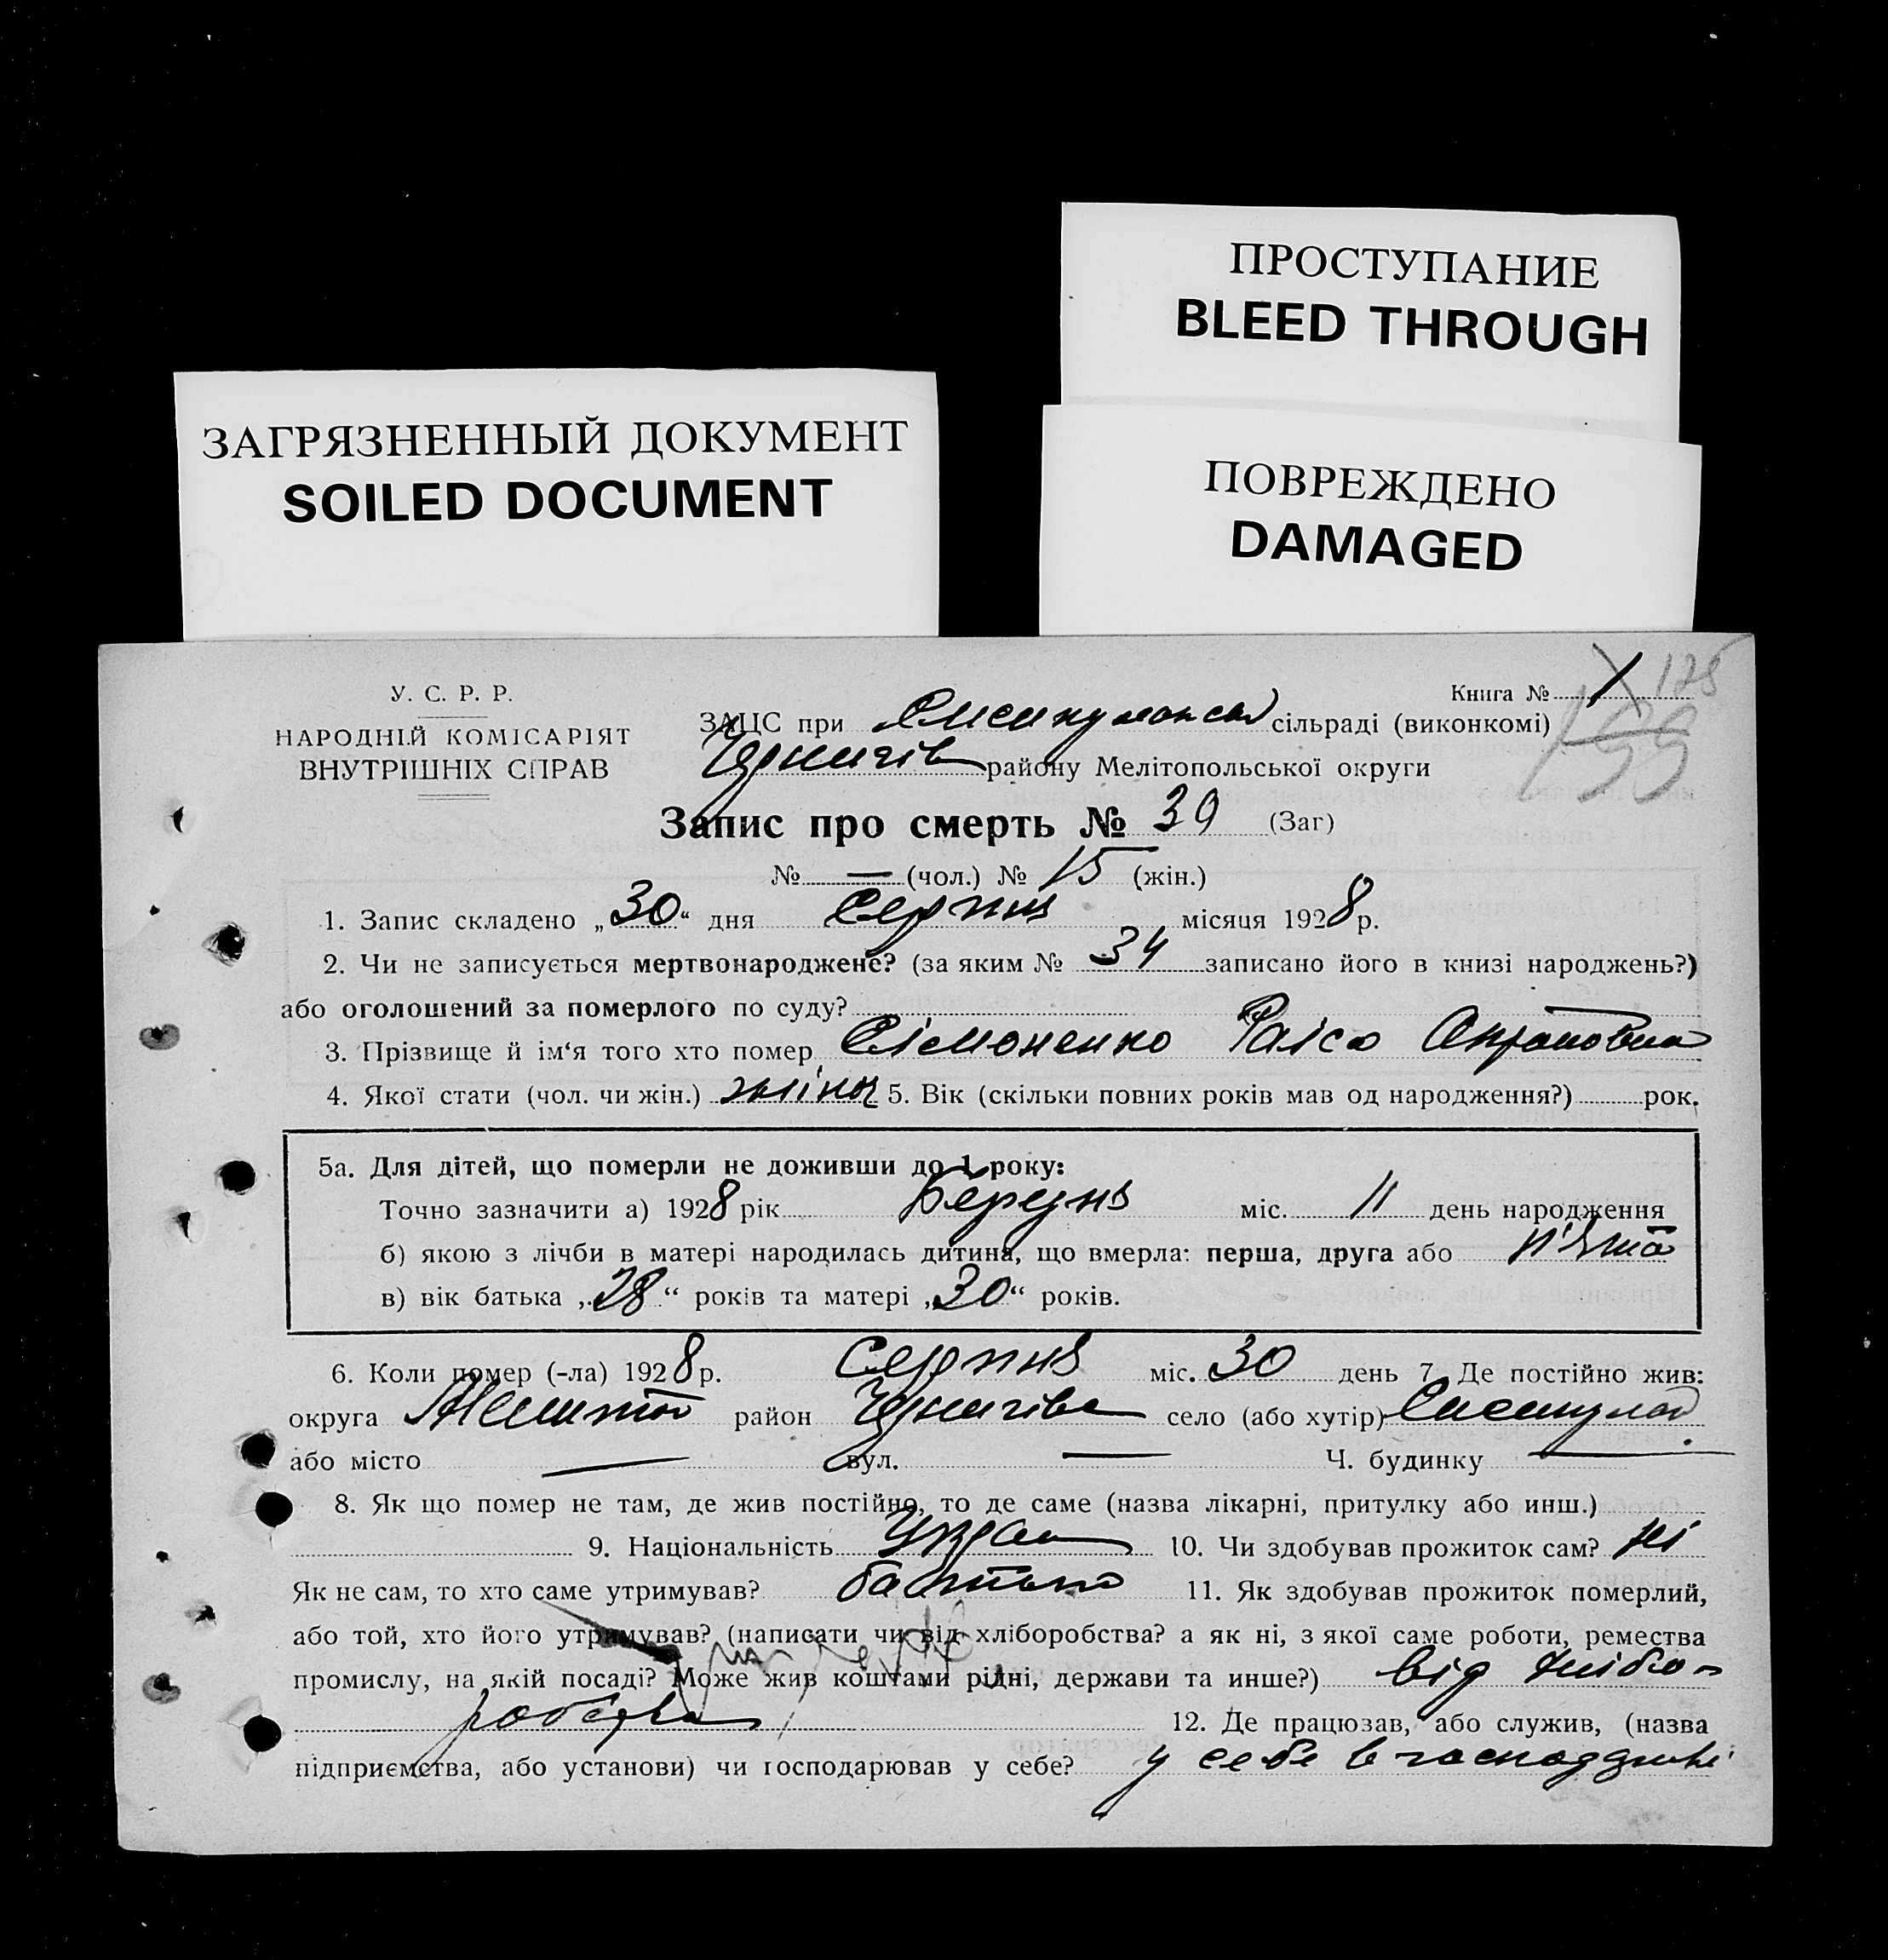 ПРОСТУПАНИЕ
BLEED THROUGH
ЗАГРЯЗНЕННЫЙ ДОКУМЕНТ
SOILED DOCUMENT
ПОВРЕЖДЕНО
DAMAGED
У. С. Р. Р.
НАРОДНІЙ КОМІСАРІЯТ
ВНУТРІШНІХ СПРАВ
Книга № 1 125
199
ЗАЦС при сільраді (виконкомі)
району Мелітопольської округи
Запис про смерть № 39 (Заг)
№ — (чол.) № 15 (жін.)
1. Запис складено „30“ дня Серпня місяця 1928 р.
2. Чи не записується мертвонароджене? (за яким № 34 записано його в книзі народжень?)
або оголошений за померлого по суду?
3. Прізвище й ім‘я того хто помер Сімоненко Раіса
4. Якої стати (чол. чи жін.) жіноч 5. Вік (скільки повних років мав од народження?) рок.
5а. Для дітей, що померли не доживши до 1 року:
Точно зазначити а) 1928 рік Березня міс. 11 день народження
б) якою з лічби в матері народилась дитина, що вмерла: перша, друга або п'ята
в) вік батька „28“ років та матері „30“ років.
6. Коли помер (-ла) 1928 р. Серпня міс. 30 день 7. Де постійно жив:
округа район село (або хутір)
або місто — вул. — Ч. будинку —
8. Як що помер не там, де жив постійно, то де саме (назва лікарні, притулку або инш.)
9. Національність Украі 10. Чи здобував прожиток сам? ні
Як не сам, то хто саме утримував? батько 11. Як здобував прожиток померлий,
або той, хто його утримував? (написати чи від хліборобства? а як ні, з якої саме роботи, ремества
промислу, на якій посаді? Може жив коштами рідні, держави та инше?) від хлібо-
робства 12. Де працюзав, або служив, (назва
підприємства, або установи) чи господарював у себе? у себе в господарстві